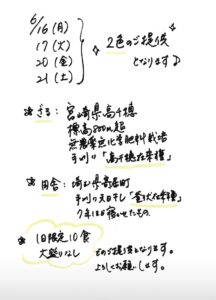 6/16(月)
17(火)
20(金)
21(土)
2色のご提供
となります♪
ざる: 宮崎県高千穂
標高800m超
無農薬無化学肥料栽培
手刈り「高千穂在来種」
田舎: 埼玉県寄居町
手刈り天日干し
今年は
1日限定10食
大盛りなし
でのご提供となります。
よろしくお願いします。